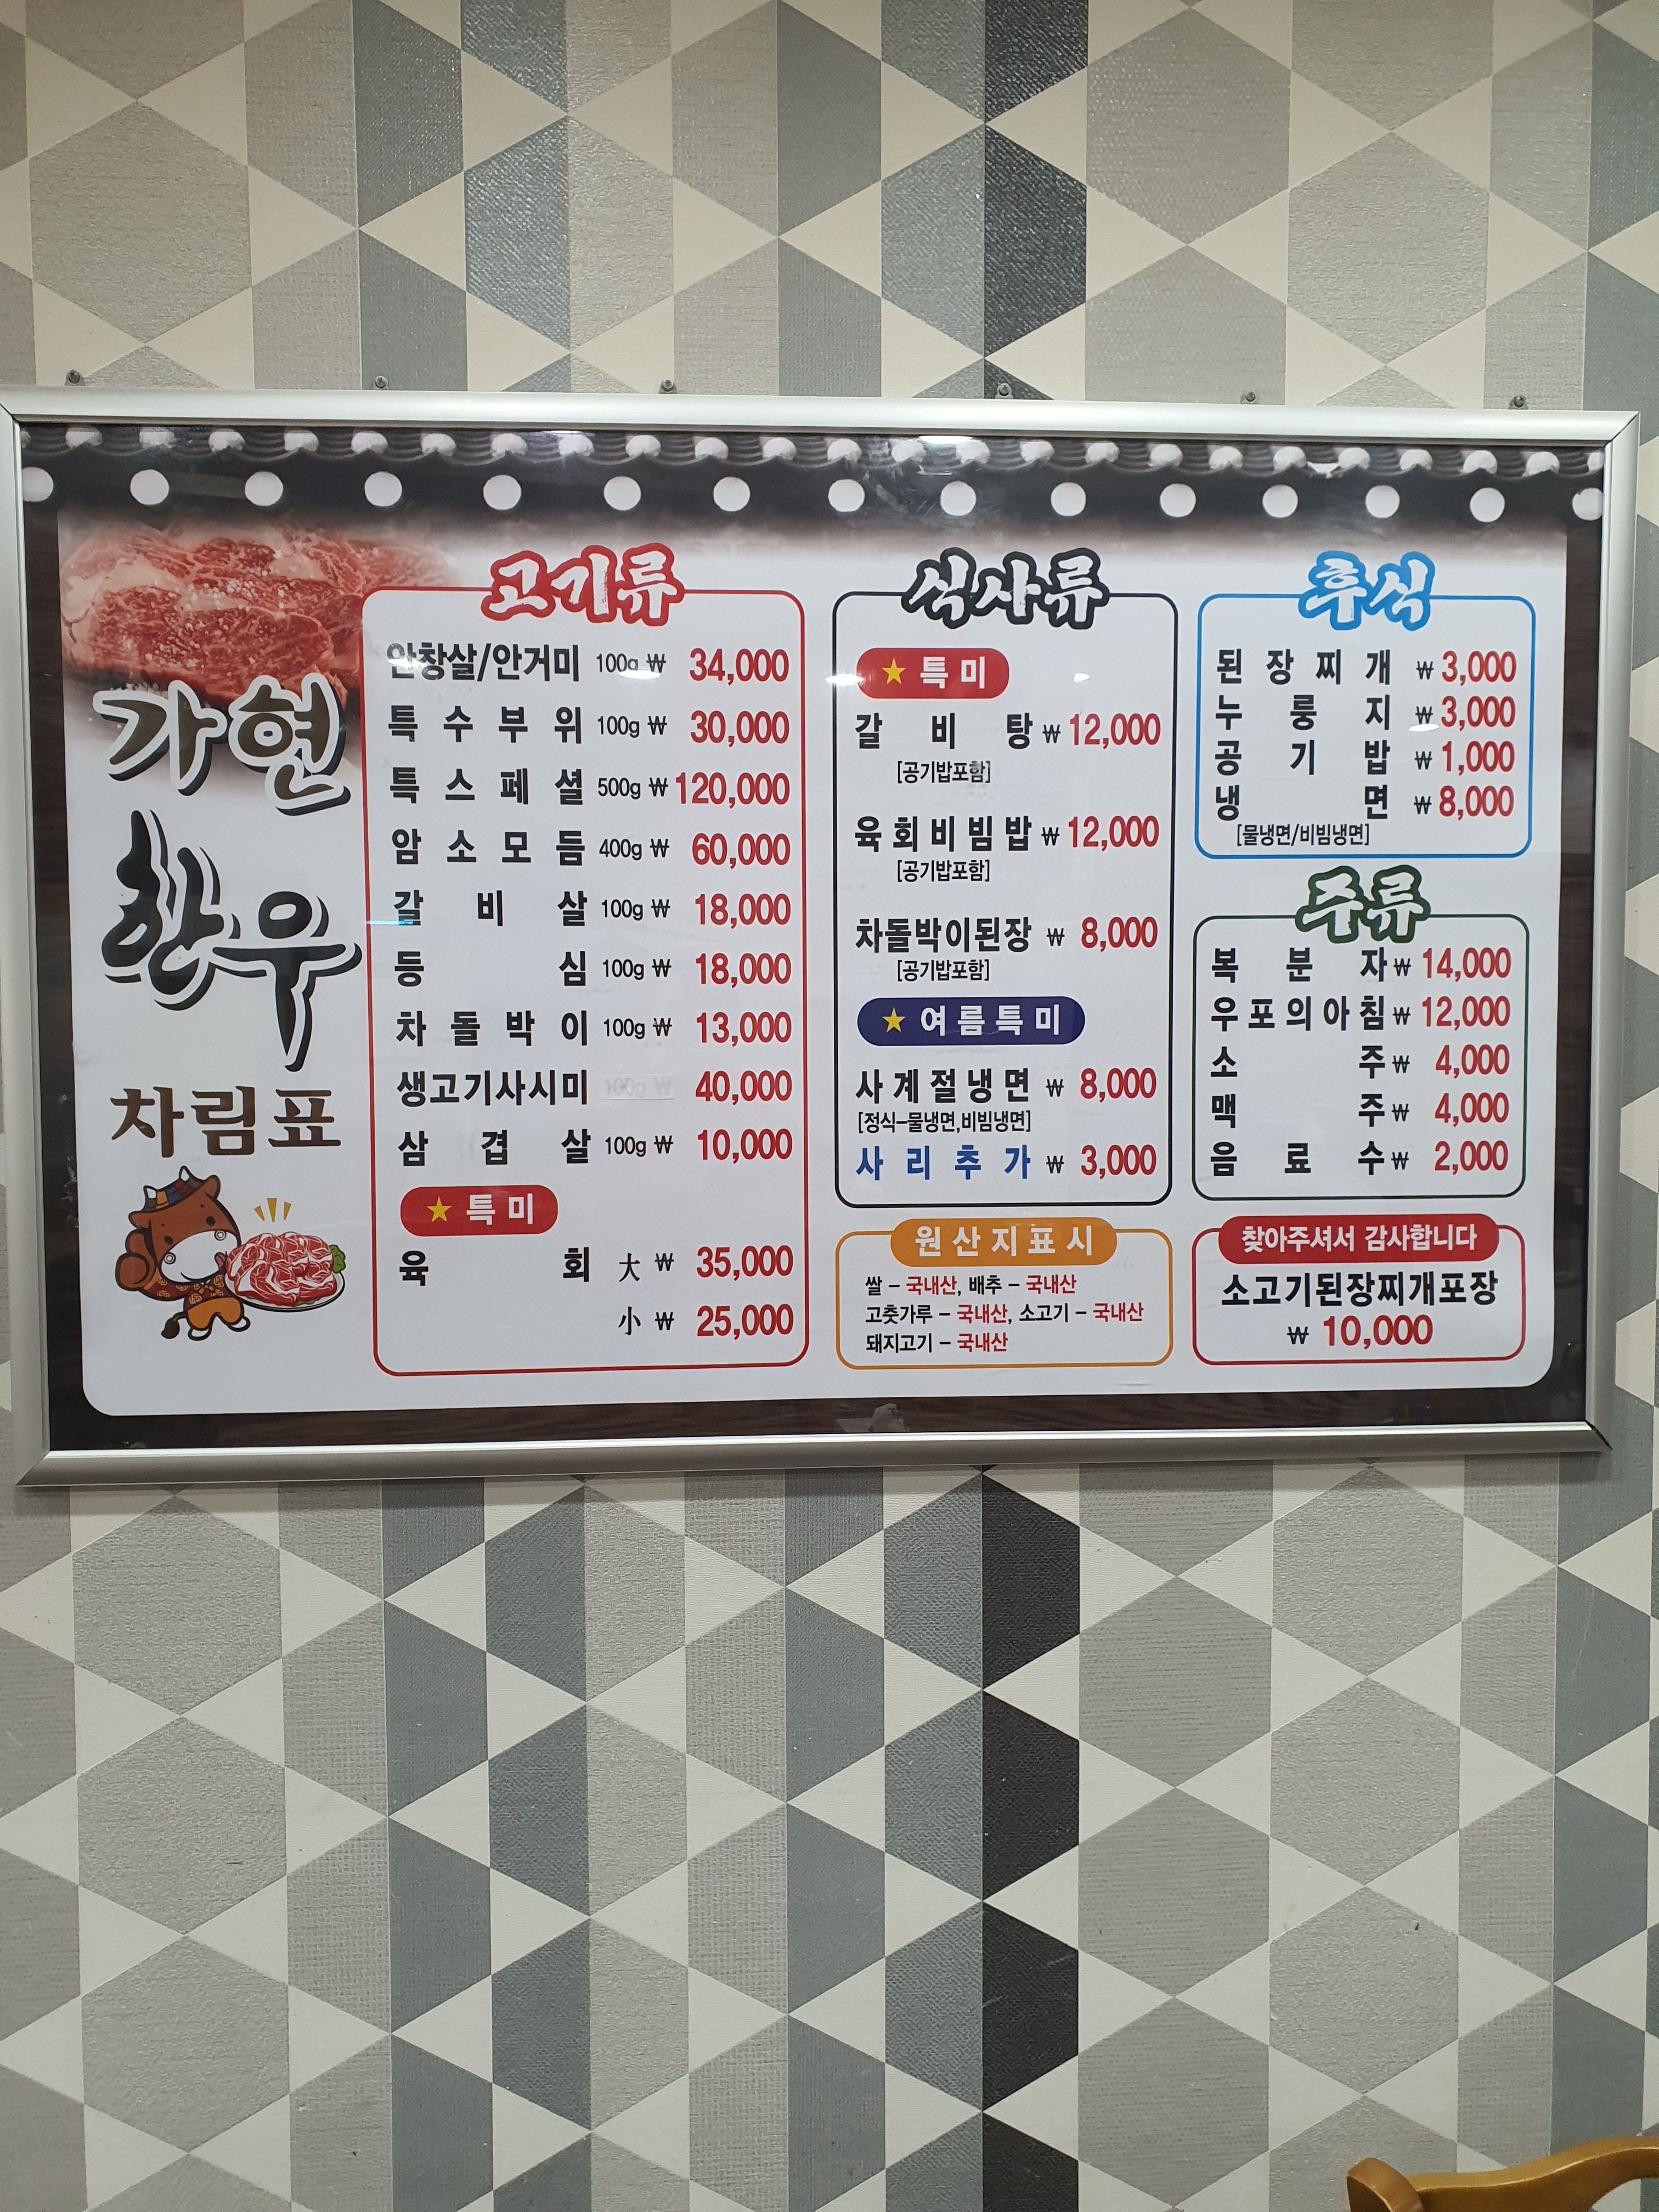 가현
한우
차림표
고기류
안창살/안거미 100g ₩ 34,000
특수부위 100g ₩ 30,000
특스페셜 500g ₩ 120,000
암소모듬 400g ₩ 60,000
갈비살 100g ₩ 18,000
등심 100g ₩ 18,000
차돌박이 100g ₩ 13,000
생고기사시미 40,000
삼겹살 100g ₩ 10,000
★ 특미
육회 大 ₩ 35,000
小 ₩ 25,000
식사류
★ 특미
갈비탕 ₩ 12,000
[공기밥포함]
육회비빔밥 ₩ 12,000
[공기밥포함]
차돌박이된장 ₩ 8,000
[공기밥포함]
★ 여름특미
사계절냉면 ₩ 8,000
[정식-물냉면,비빔냉면]
사리추가 ₩ 3,000
원산지표시
쌀 - 국내산, 배추 - 국내산
고춧가루 - 국내산, 소고기 - 국내산
돼지고기 - 국내산
후식
된장찌개 ₩ 3,000
누룽지 ₩ 3,000
공기밥 ₩ 1,000
냉면 ₩ 8,000
[물냉면/비빔냉면]
주류
복분자 ₩ 14,000
우포의아침 ₩ 12,000
소주 ₩ 4,000
맥주 ₩ 4,000
음료수 ₩ 2,000
찾아주셔서 감사합니다
소고기된장찌개포장
₩ 10,000